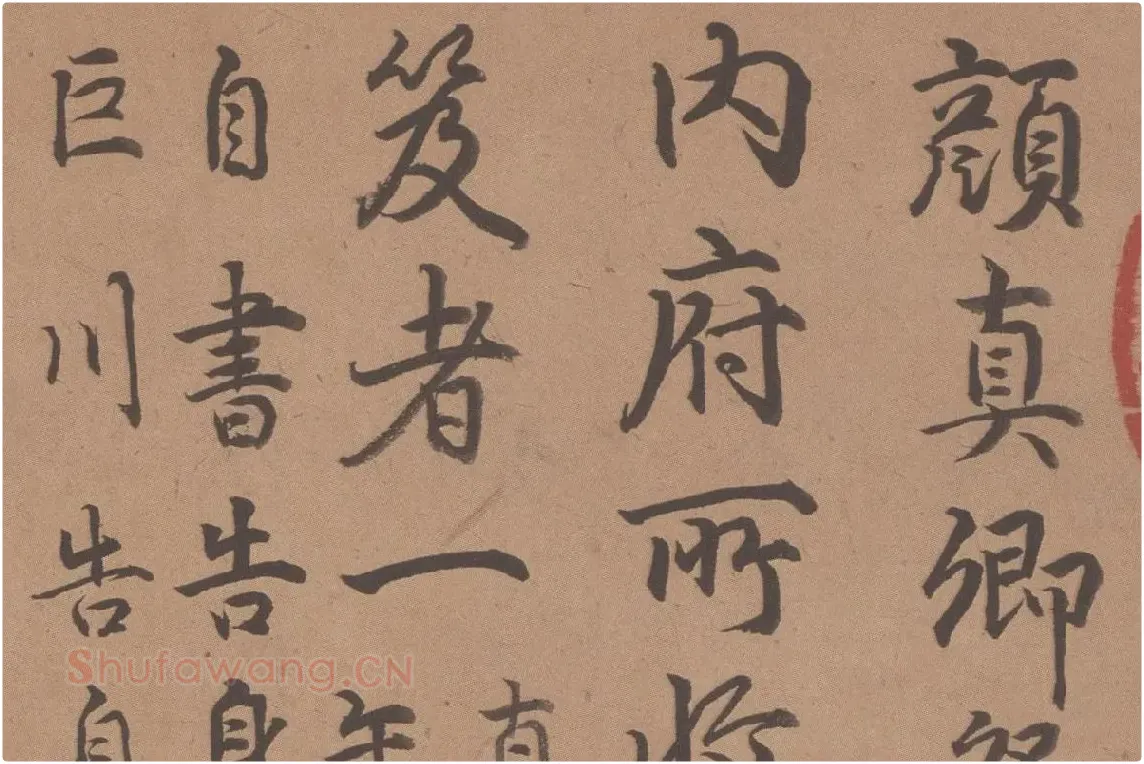 顔真卿
内府所
笈者一
自書告身
巨川告
Shufawang.CN